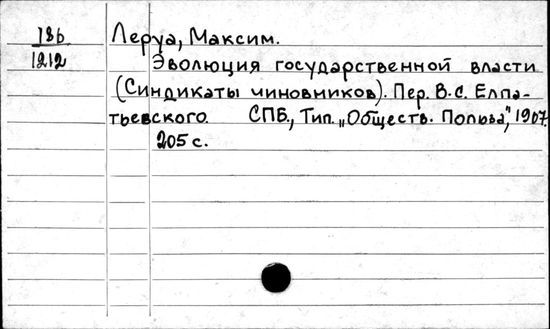 18б Леруа, Максим.
1212 Эволюция государственной власти
(Синдикаты чиновников). Пер. В.С. Елпа-
тьевского. СПБ., Тип. „Обществ. Польза", 1907.
205 с.